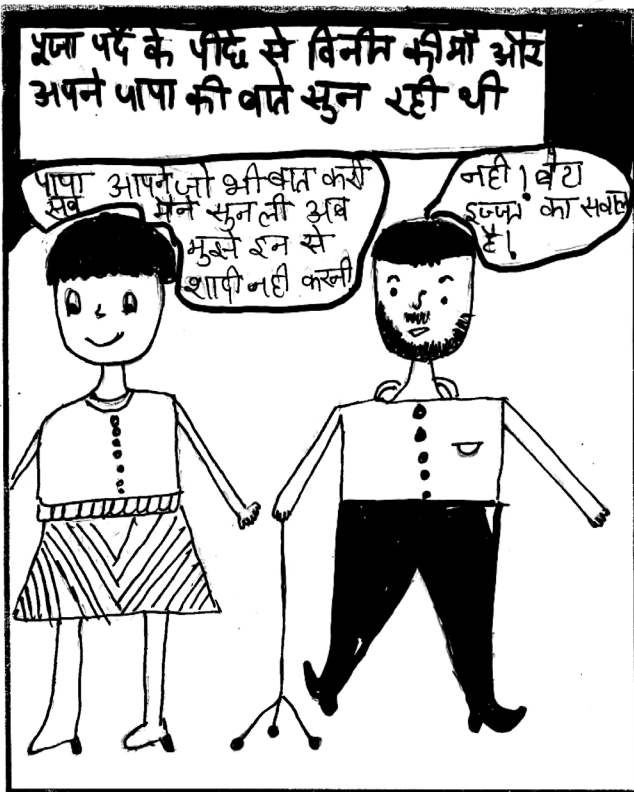 पूजा पर्दे के पीछे से विनीत की माँ और
अपने पापा की बाते सुन रही थी
पापा आपने जो भी बात करी
सब मैने सुन ली अब
मुझे इन से
शादी नही करनी
नही! बेटा
इज्जत का सवाल
है।